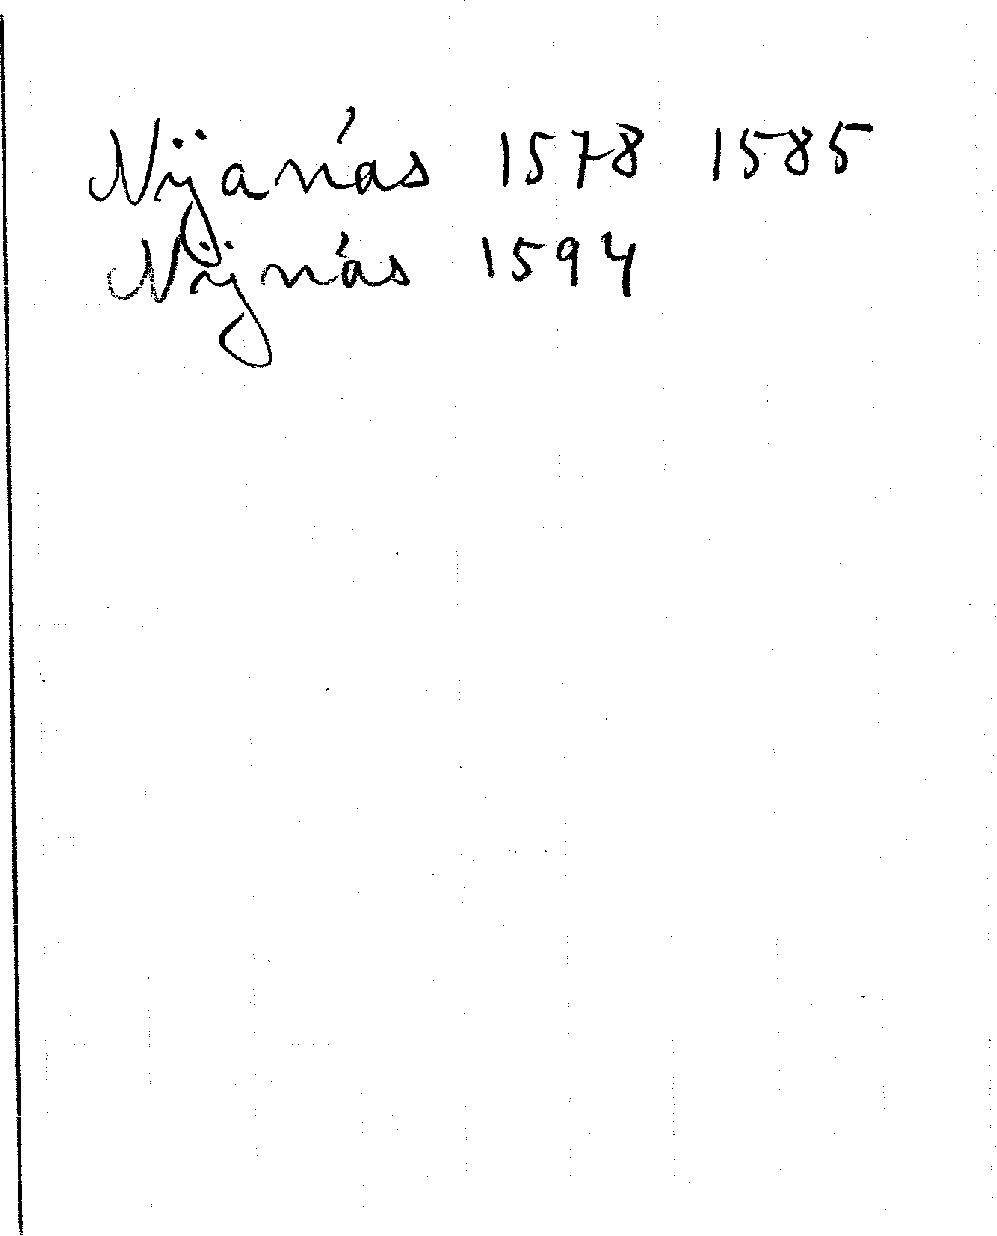 Nijanás 1578 1585
Nijnás 1594